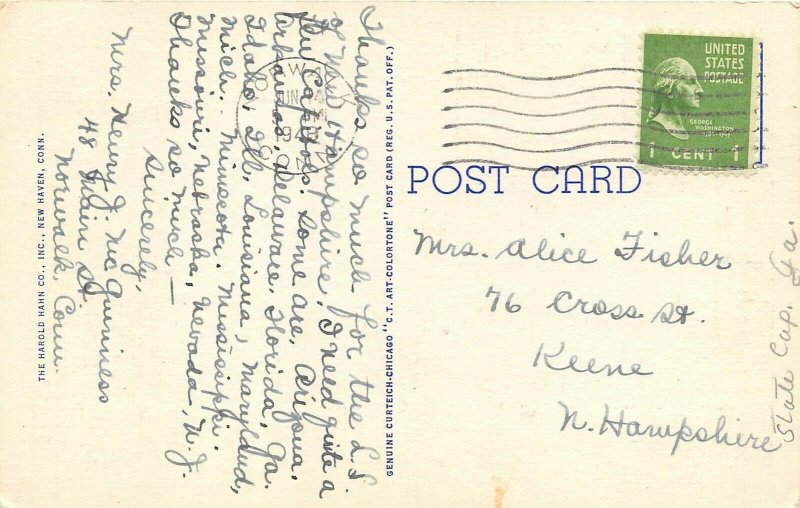 Thanks so much for the L.S.
of New Hampshire. I need quite a
few Capitols. Some are, Arizona,
Arkansas, Delaware, Florida, Ga.
Idaho, Ill, Louisiana, Maryland,
Mich. Minnesota. Mississippi.
Missouri, Nebraska, Nevada, N.J.
Thanks so much —
Sincerely,
Mrs. Henry J. Mc Guinness
48 Main St.
Norwalk, Conn.
THE HAROLD HAHN CO., INC., NEW HAVEN, CONN.
GENUINE CURTEICH-CHICAGO "C.T. ART-COLORTONE" POST CARD (REG. U.S. PAT. OFF.)
UNITED
STATES
POSTAGE
GEORGE
WASHINGTON
1 CENT 1
POST CARD
Mrs. Alice Fisher
76 Cross St.
Keene
N. Hampshire
State Cap. Ga.